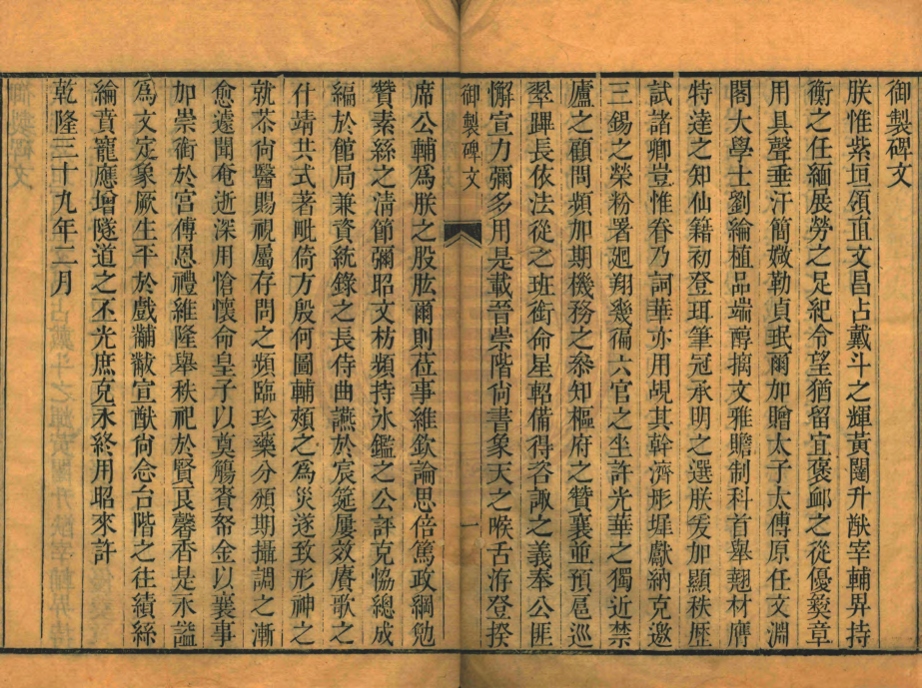 御製碑文
朕惟紫垣領直文昌占戴斗之輝黃閣升猷宰輔昇持
衡之任緬展勞之足紀令望猶留宜褒卹之從優褧章
用具聲垂汗簡媺勒貞珉爾加贈太子太傅原任文淵
閣大學士劉綸植品端醇摛文雅贍制科首舉翹材膺
特達之知仙籍初登珥筆冠承明之選朕爰加顯秩歷
試諸卿豈惟眷乃詞華亦用覘其幹濟形墀獻納克邀
三錫之榮粉署廻翔幾徧六官之坐許光華之獨近禁
廬之顧問頻加期機務之叅知樞府之贊襄並預扈巡
翠蹕長依法從之班銜命星軺備得咨諏之義奉公匪
懈宣力彌多用是載晉崇階尙書象天之喉舌洊登揆
御製碑文
一
席公輔爲朕之股肱爾則莅事維欽論思倍篤政綱勉
贊素絲之淸節彌昭文枋頻持氷鑑之公評克恊總成
編於館局兼資統錄之長侍曲讌於宸筵屢效賡歌之
什靖共式著毗倚方殷何圖輔頰之爲災遂致形神之
就苶尙醫賜視屬存問之頻臨珍藥分頒期攝調之漸
愈遽聞奄逝深用愴懷命皇子以奠觴賚帑金以襄事
加崇銜於宮傅恩禮維隆舉秩祀於賢良馨香是永謚
爲文定象厥生平於戲黼黻宣猷尙念台階之往績絲
綸賁寵應增隧道之丕光庶克永終用昭來許
乾隆三十九年二月